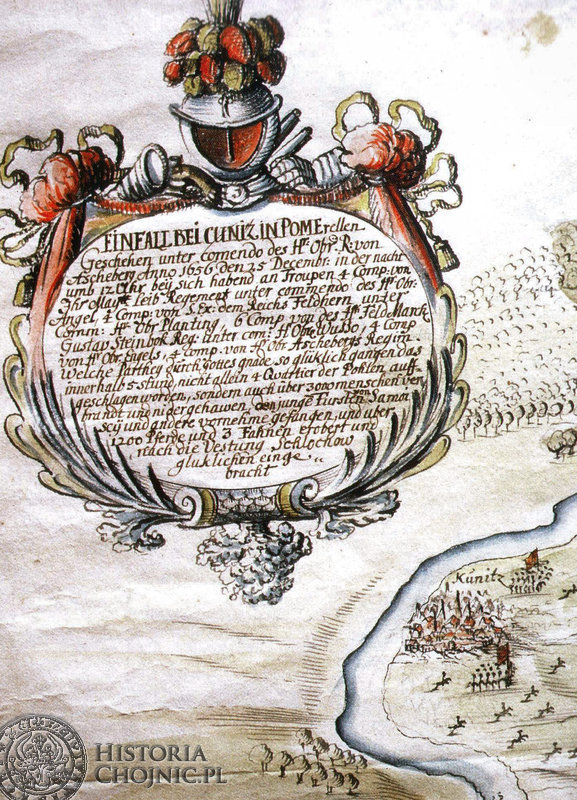 EINFALL BEI CUNIZ IN POMErellen
Geschehen unter comendo des Hr Obr R. von
Ascheberg Anno 1656 den 25 Decembr: in der nacht
umb 12 Uhr bey sich habend an Troupen 4 Comp: von
Ihr Maytt Leib Regement unter commendo des Hr Obr:
4 Comp: von S. Ex: dem Reichs Feldhern unter
Comm: Hr Obr Planting, 6 Comp von des Hr Feld Marck
Gustav Steinbok Reg: unter com: Hr Obr Wulso, 4 Comp
von Hr Obr Engels, 4 comp. von Hr Obr Aschebergs Regim
Welche Parthey durch Gottes gnade so glüklich gangen das
innerhalb 5 stund, nicht allein 4 Quartier der Pohlen auff
geschlagen worden, sondern auch über 3000 menschen ver
brandt und nidergehauen, den junge Fursten Samo
scij und andere vornehme gefangen, und uber
1200 Pferde und 3 Fahnen erobert und
nach die Vestung Schlochow
gluklichen einge
bracht
Kunitz
HISTORIA
CHOJNIC.PL